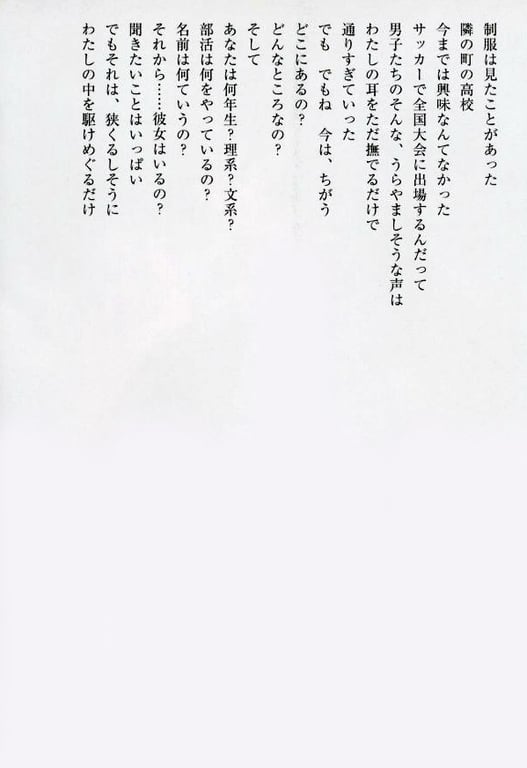 制服は見たことがあった
隣の町の高校
今までは興味なんてなかった
サッカーで全国大会に出場するんだって
男子たちのそんな、うらやましそうな声は
わたしの耳をただ撫でるだけで
通りすぎていった
でも　でもね　今は、ちがう
どこにあるの？
どんなところなの？
そして
あなたは何年生？理系？文系？
部活は何をやっているの？
名前は何ていうの？
それから……彼女はいるの？
聞きたいことはいっぱい
でもそれは、狭くるしそうに
わたしの中を駆けめぐるだけ